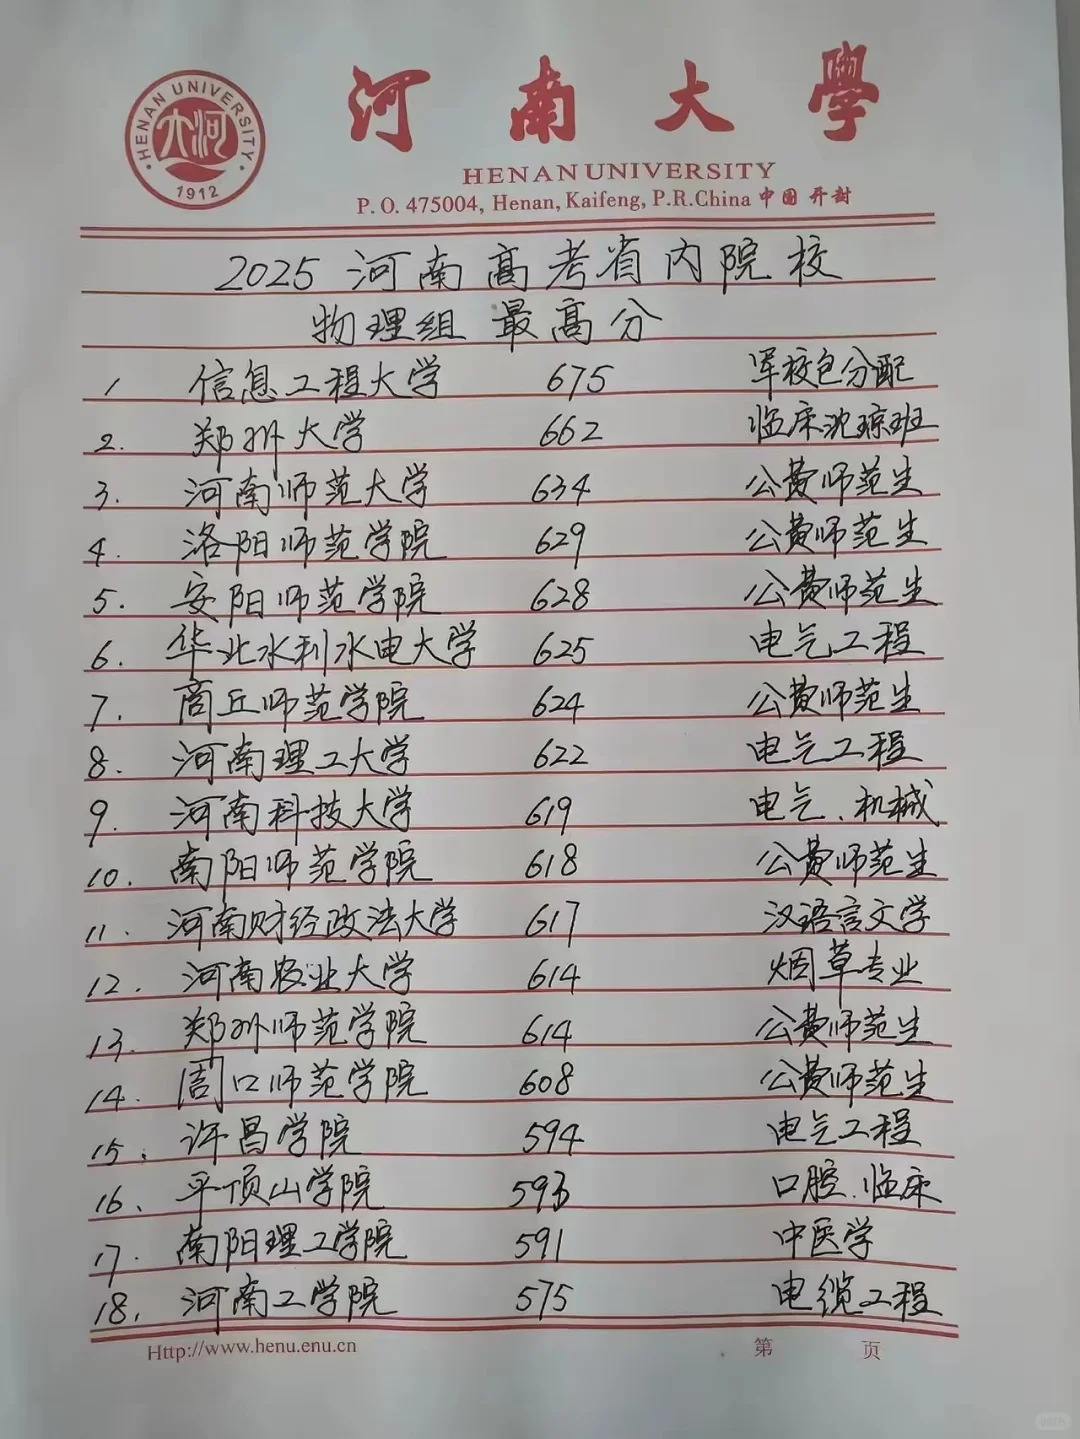 河南大學
HENAN UNIVERSITY
大河
1912
HENAN UNIVERSITY
P. O. 475004, Henan, Kaifeng, P.R.China 中国 开封
2025 河南高考省内院校
物理组 最高分
1 信息工程大学 675 军校包分配
2. 郑州大学 662 临床沈琼班
3. 河南师范大学 634 公费师范生
4. 洛阳师范学院 629 公费师范生
5. 安阳师范学院 628 公费师范生
6. 华北水利水电大学 625 电气工程
7. 商丘师范学院 624 公费师范生
8. 河南理工大学 622 电气工程
9. 河南科技大学 619 电气、机械
10. 南阳师范学院 618 公费师范生
11. 河南财经政法大学 617 汉语言文学
12. 河南农业大学 614 烟草专业
13. 郑州师范学院 614 公费师范生
14. 周口师范学院 608 公费师范生
15. 许昌学院 594 电气工程
16、 平顶山学院 593 口腔、临床
17. 南阳理工学院 591 中医学
18. 河南工学院 575 电缆工程
Http://www.henu.enu.cn 第 页